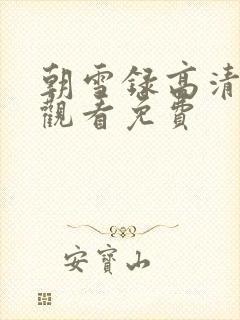 朝雪録高清
觀看免費
安寶山